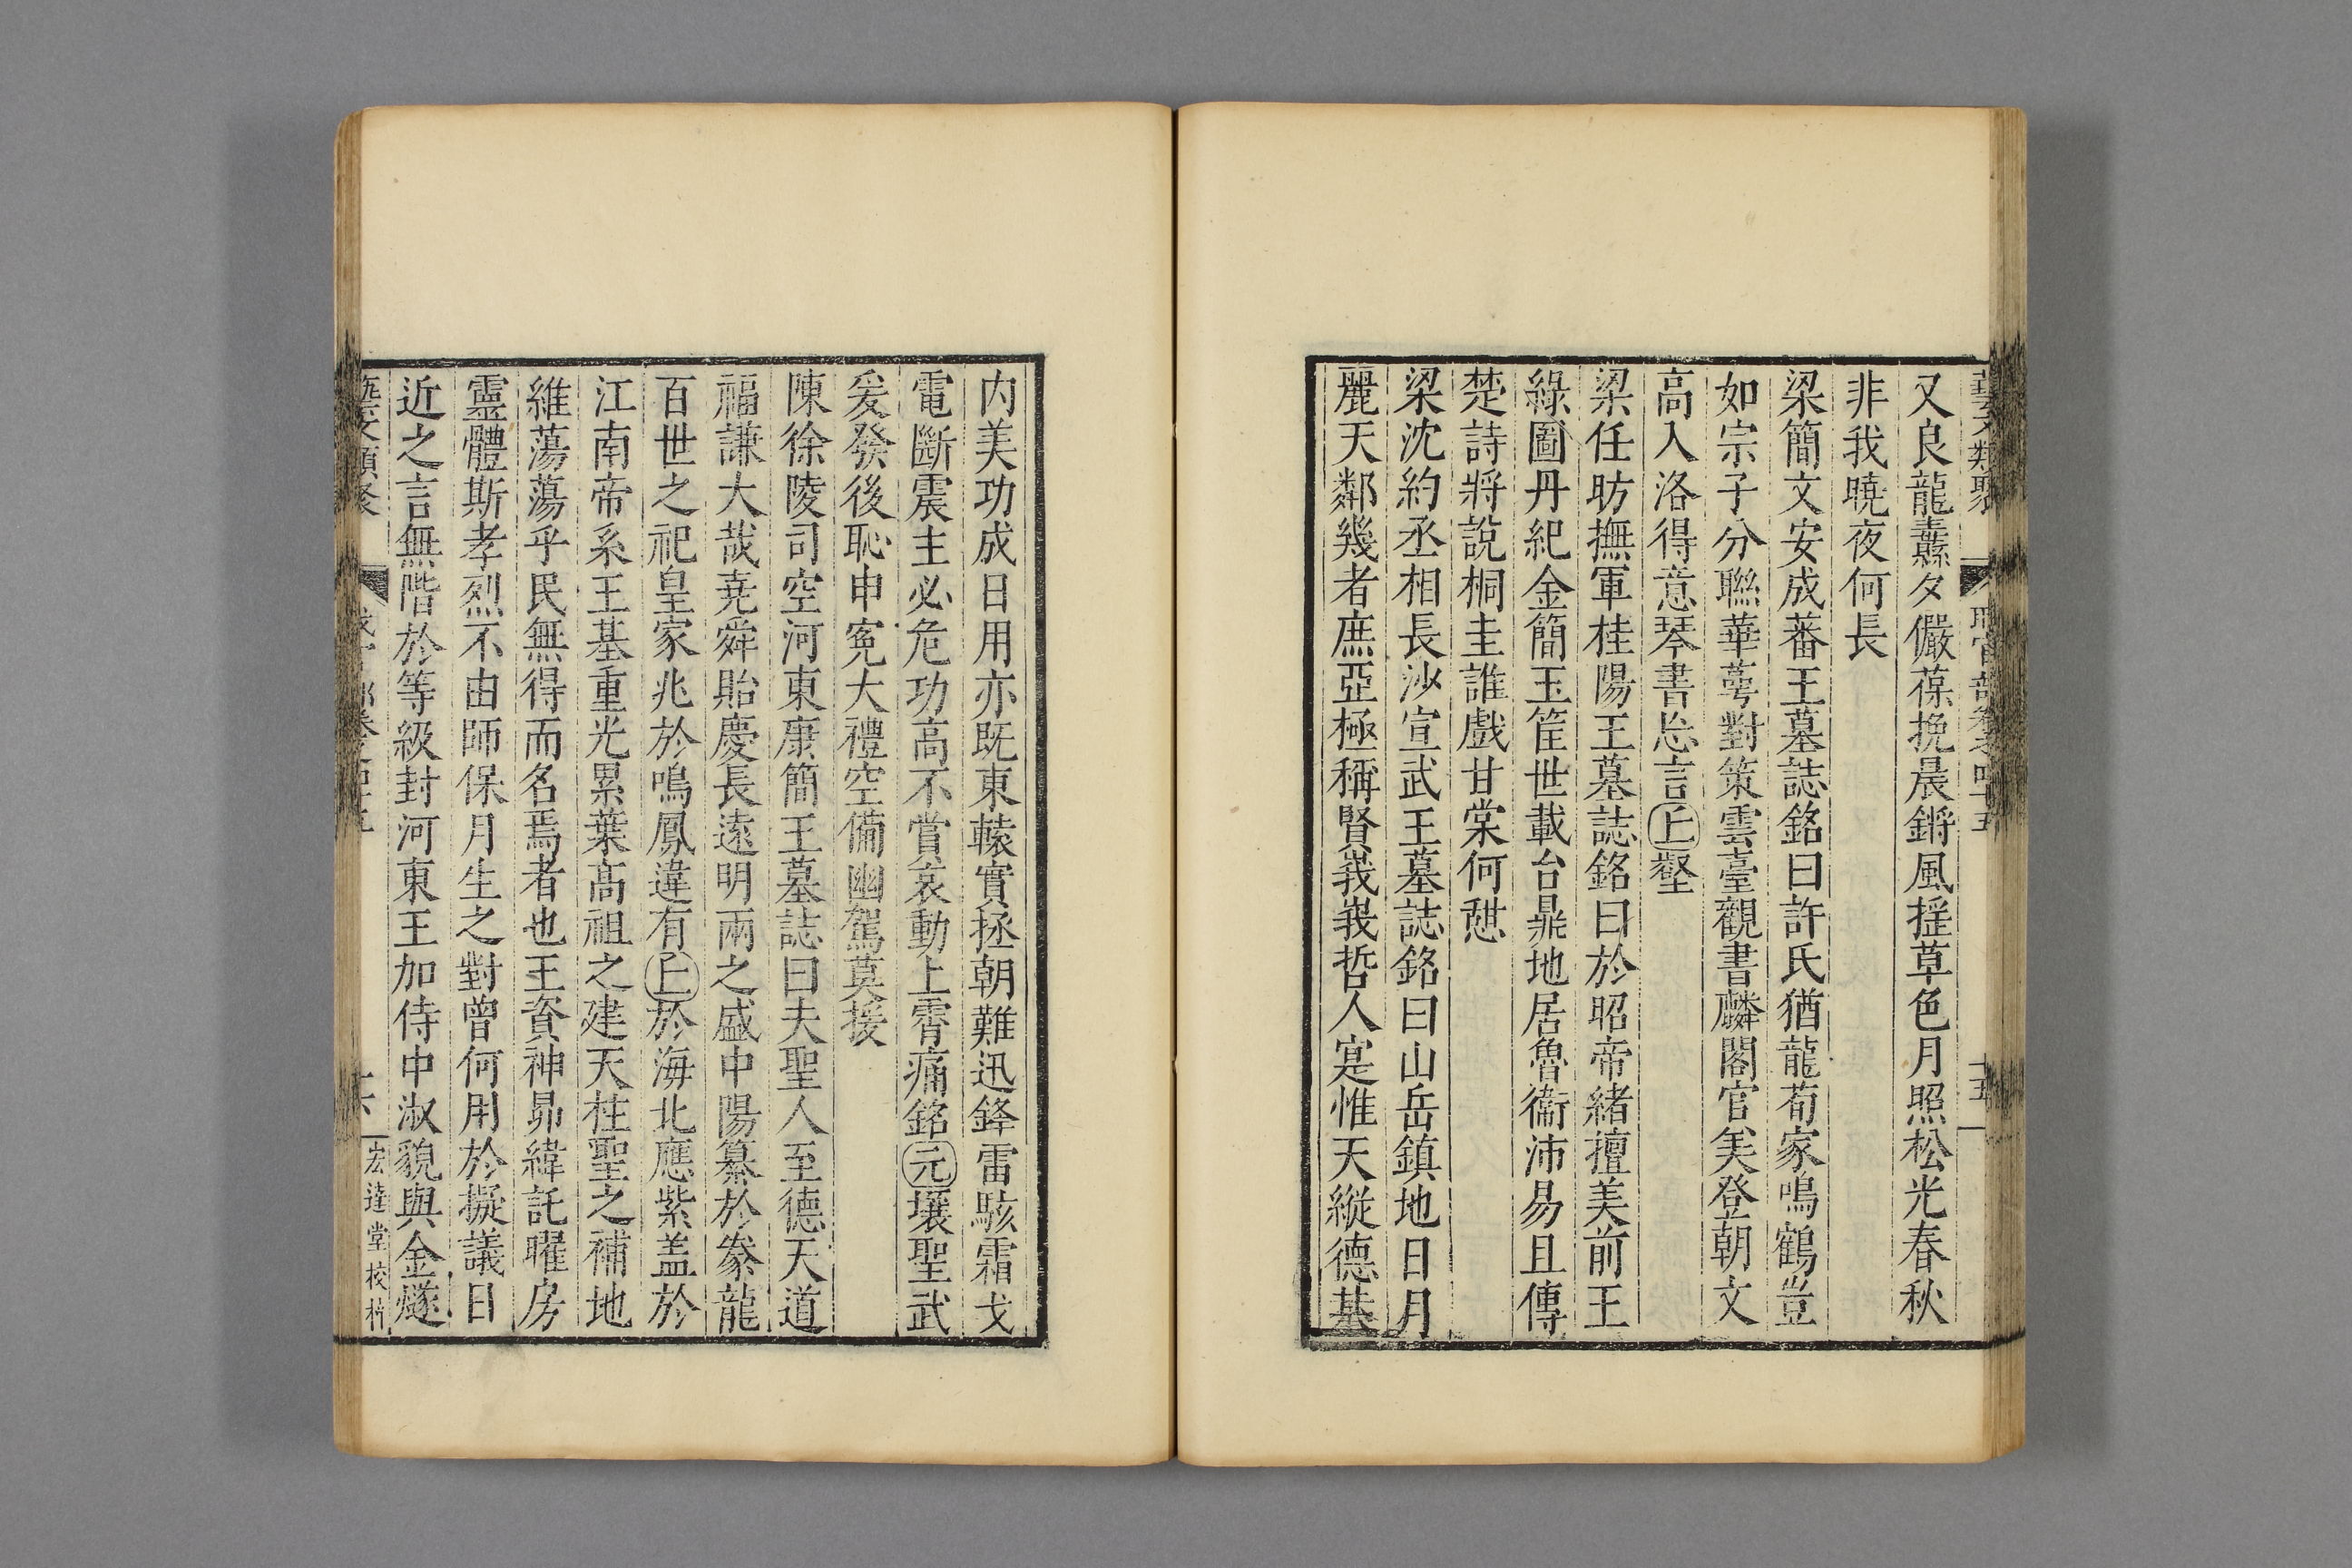 藝文類聚 職官部卷之四十五 十五
又良龍纛夕儼葆挽晨鏘風搖草色月照松光春秋
非我曉夜何長
梁簡文安成蕃王墓誌銘曰許氏猶龍荀家鳴鶴豈
如宗子分聯華萼對策雲臺觀書麟閣官羙登朝文
高入洛得意琴書忘言丘壑
梁任昉撫軍桂陽王墓誌銘曰於昭帝緒擅美前王
綠圖丹紀金簡玉筐世載台鼎地居魯衞沛易且傳
楚詩將說桐圭誰戲甘棠何憇
梁沈約丞相長沙宣武王墓誌銘曰山岳鎮地日月
麗天鄰幾者庶亞極稱賢峩峩哲人寔惟天縱德基
内美功成日用亦既東轅實拯朝難迅鋒雷駭霜戈
電斷震主必危功高不嘗哀動上霄痛銘元壤聖武
爰發後恥申寃大禮空備幽駕莫援
陳徐陵司空河東康簡王墓誌曰夫聖人至德天道
福謙大哉堯舜貽慶長遠明兩之盛中陽纂於豢龍
百世之祀皇家兆於鳴鳳違有丘於海北應紫盖於
江南帝系王基重光累葉髙祖之建天柱聖之補地
維蕩蕩乎民無得而名焉者也王資神昴緯託曜房
靈體斯孝烈不由師保月生之對曾何用於擬議日
近之言無階於等級封河東王加侍中淑貌與金燧
藝文類聚 職官部卷之四十五 十六 宏達堂校栞